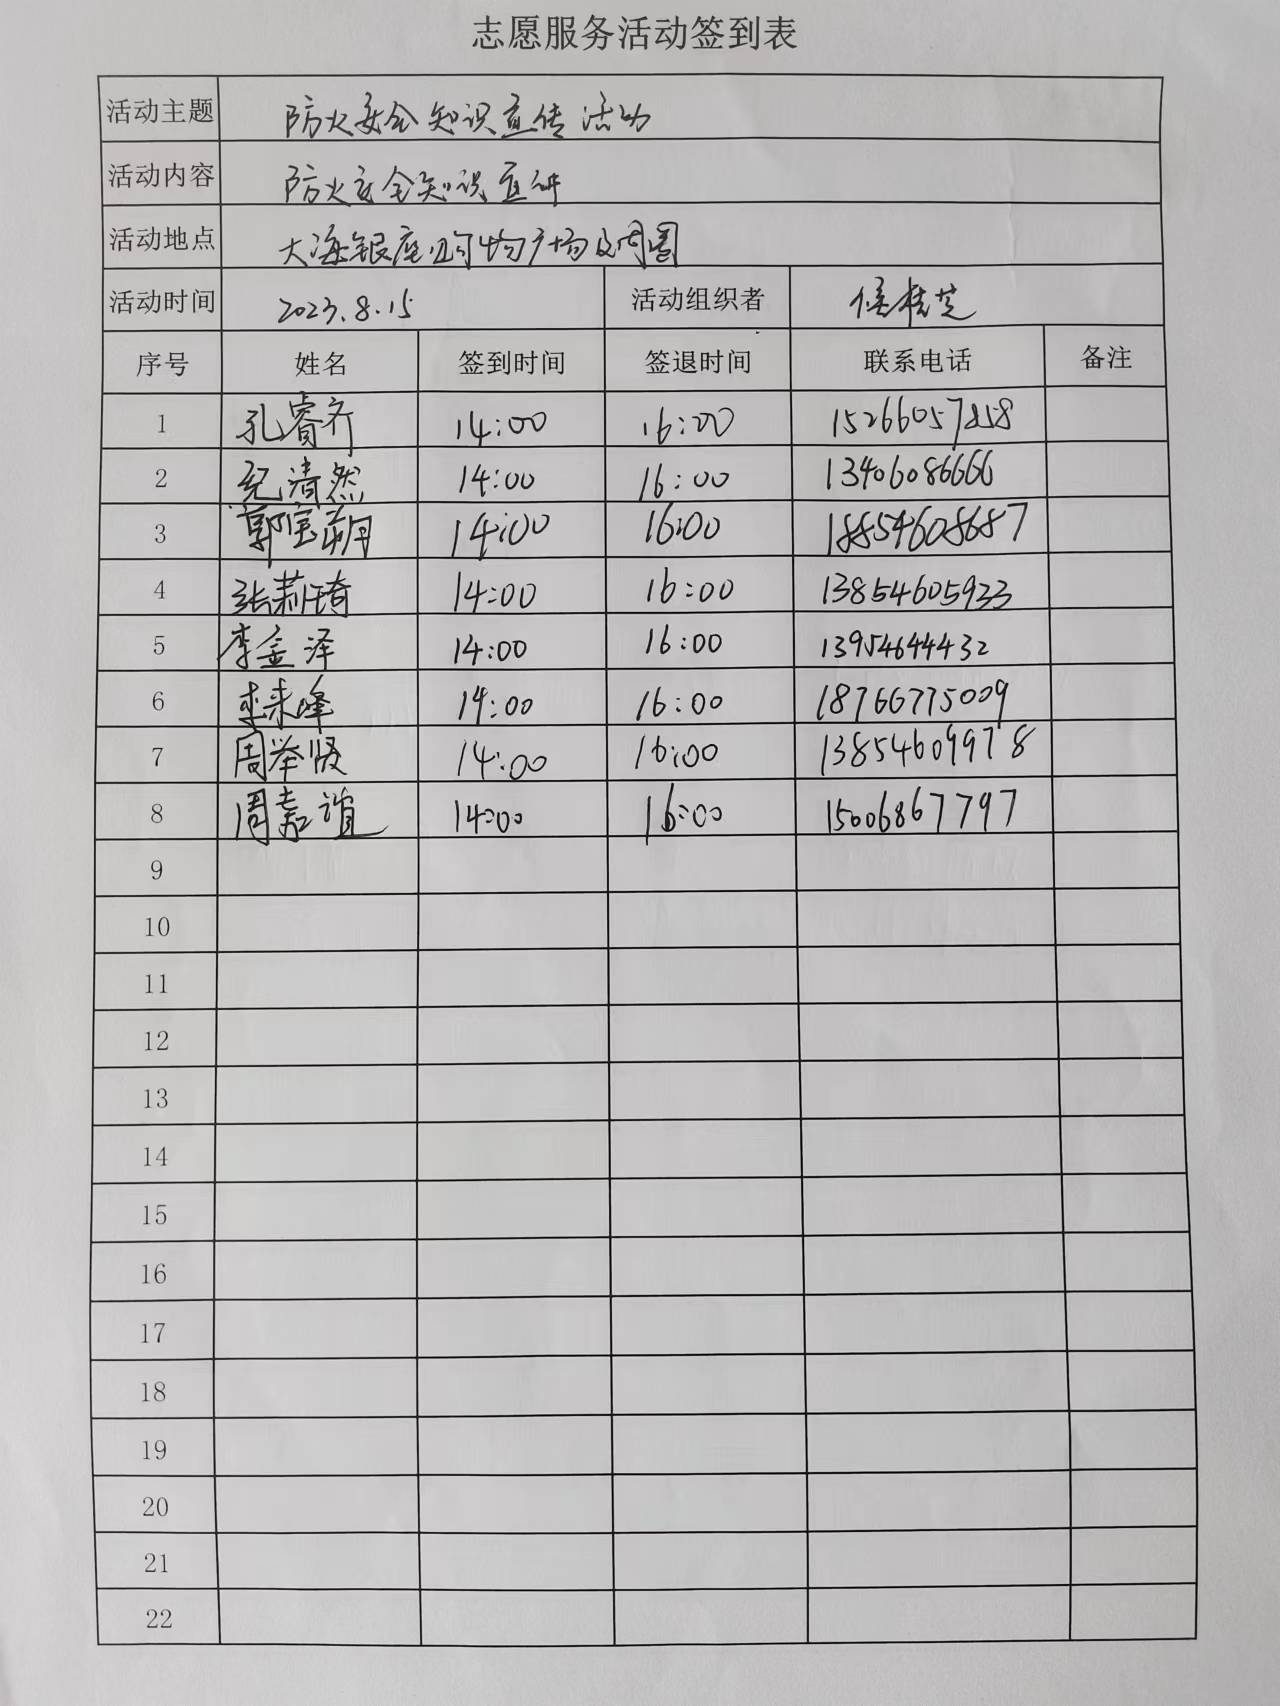 志愿服务活动签到表
活动主题 防火安全知识宣传活动
活动内容 防火安全知识宣传
活动地点 大海银座购物广场及周围
活动时间 2023.8.15 活动组织者 侯桂芝
序号 姓名 签到时间 签退时间 联系电话 备注
1 孔睿齐 14:00 16:00 15266057858
2 纪清然 14:00 16:00 13406086666
3 郭宝萌 14:00 16:00 18854608687
4 张莉琦 14:00 16:00 13854605933
5 李金泽 14:00 16:00 13954644432
6 李来峰 14:00 16:00 18766775009
7 周举贤 14:00 16:00 13854609978
8 周嘉谊 14:00 16:00 15006867797
9
10
11
12
13
14
15
16
17
18
19
20
21
22